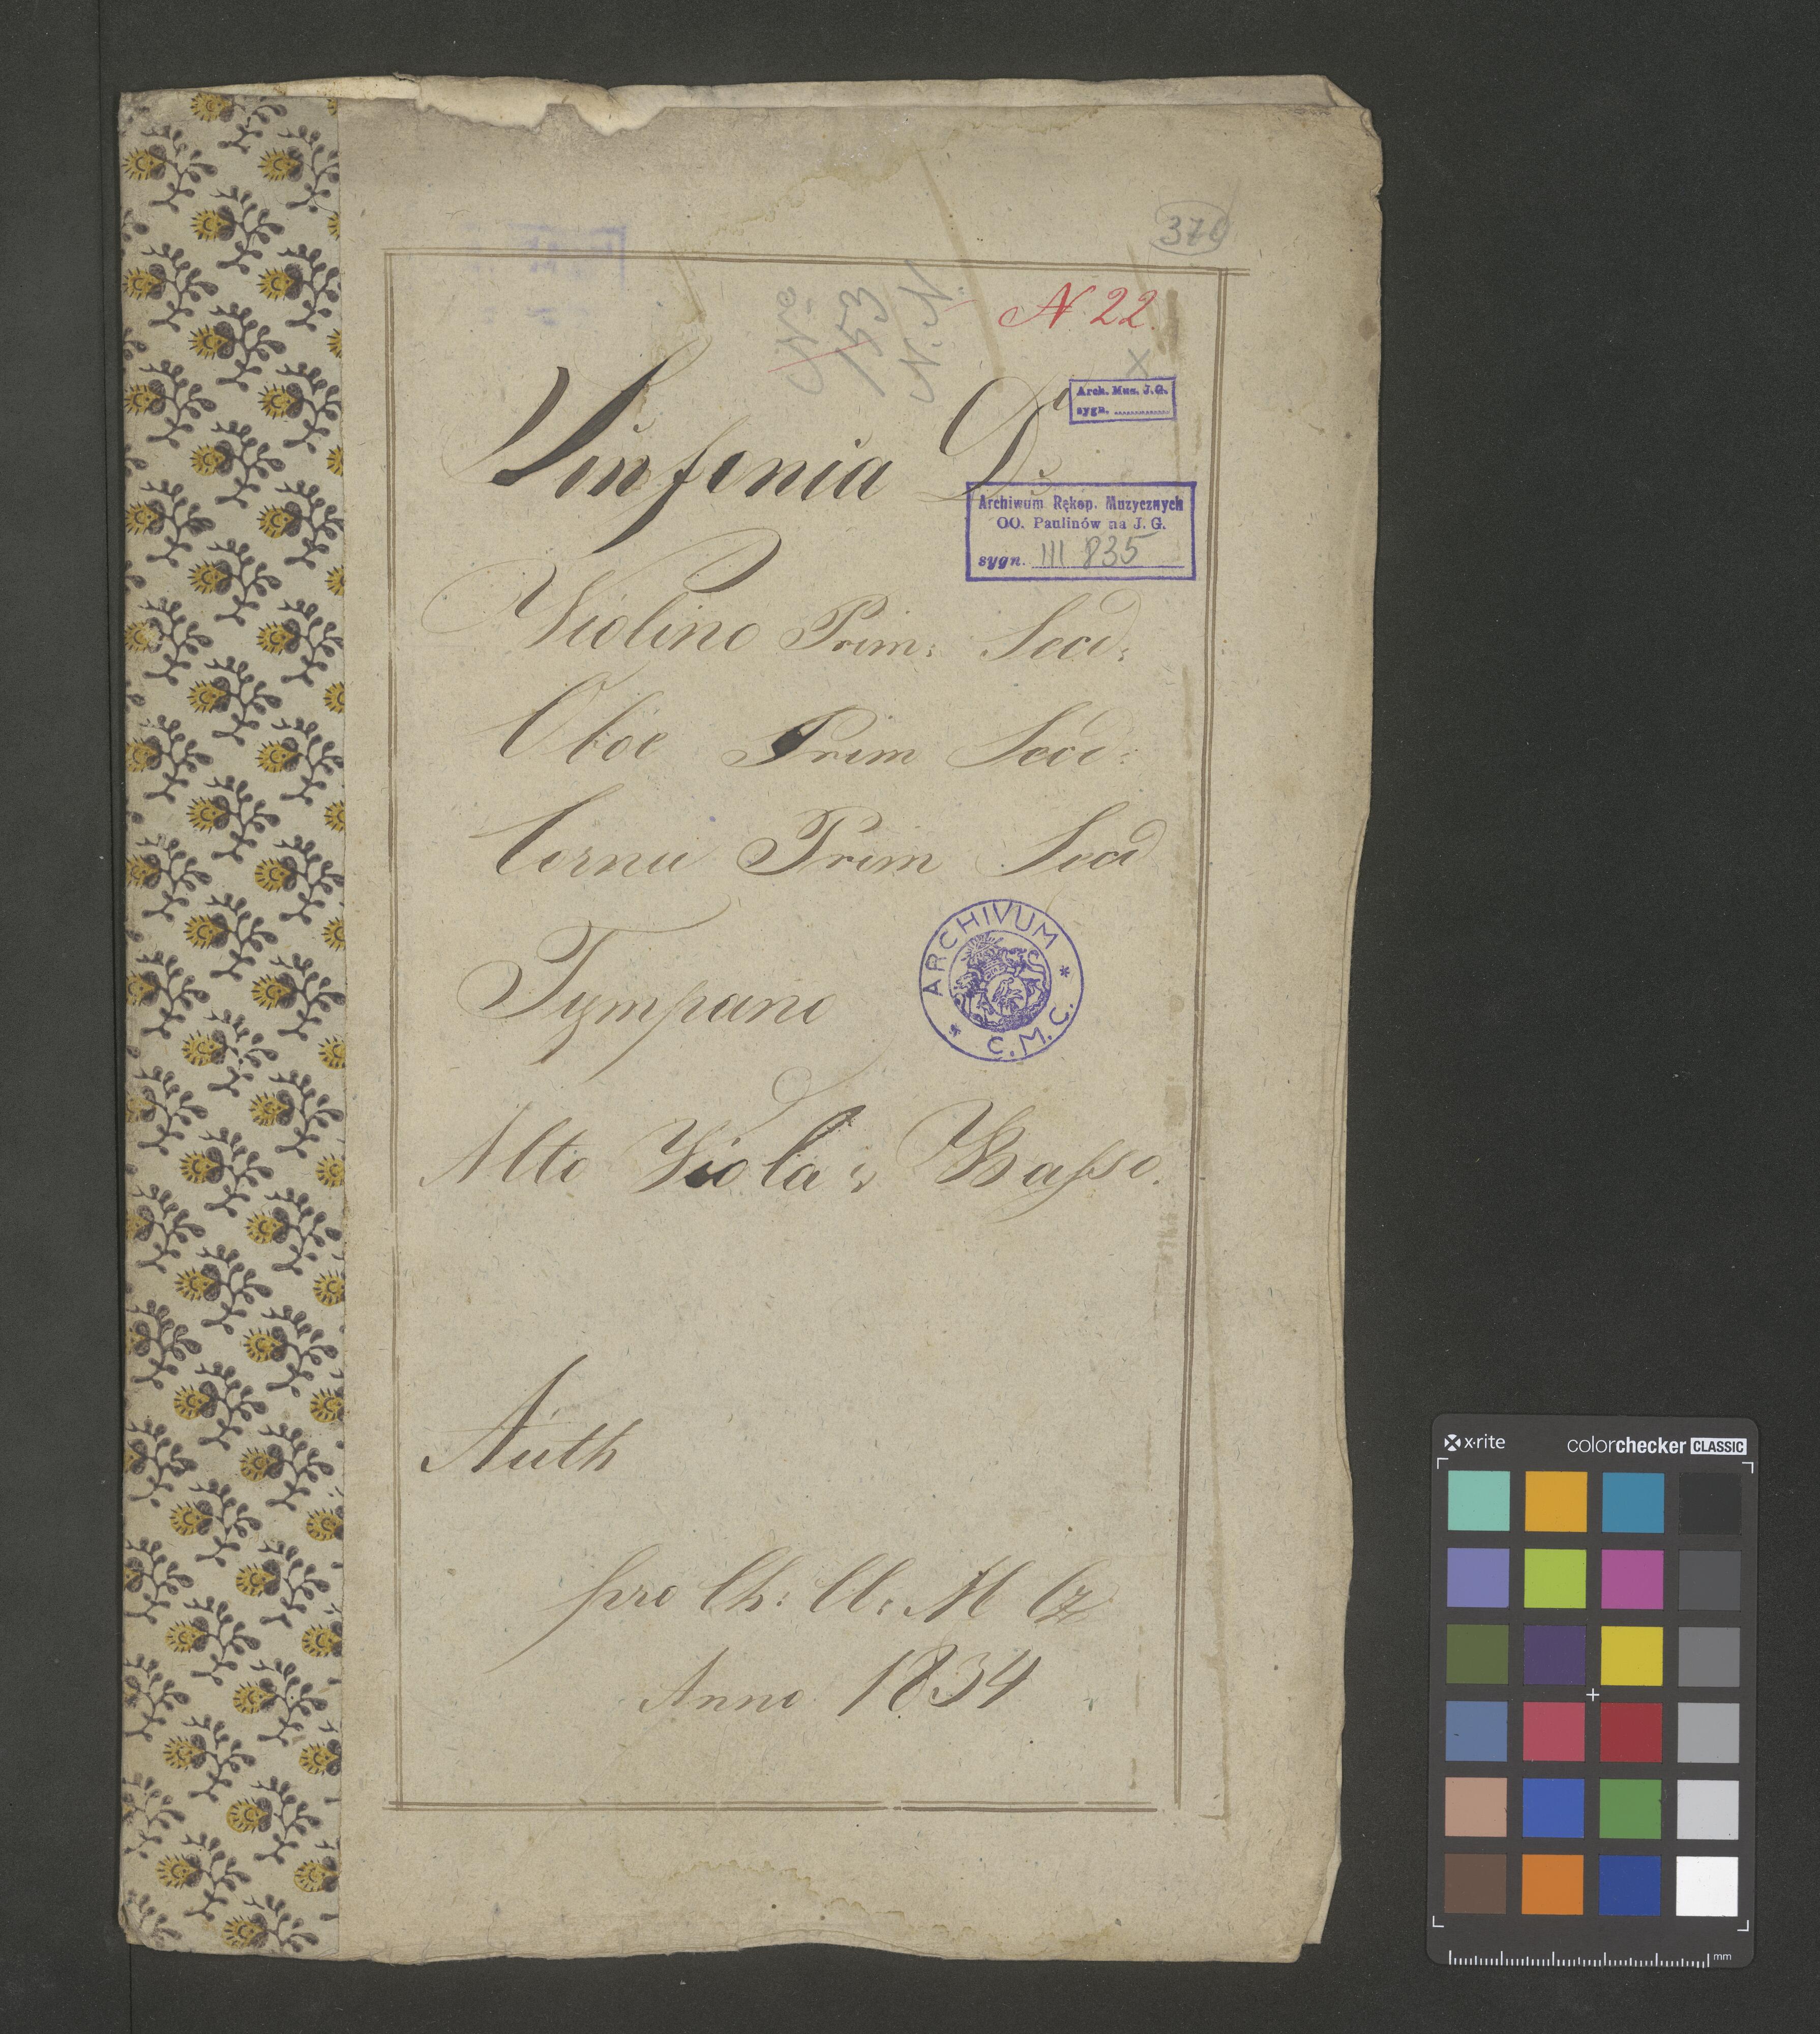 N 22.
No
153
N. N.
Arch. Mus. J. G.
sygn. ............
Sinfonia D
Archiwum Rękop. Muzycznych
OO. Paulinów na J. G.
sygn. III 835
Violino Prim: Secd:
Oboe Prim Secd:
Cornu Prim Secd
ARCHIVUM * C.M.C. *
Tympano
Alto Viola, Basso.
Auth
pro Ch: Cl: M Cz
Anno 1834
x-rite colorchecker CLASSIC
mm